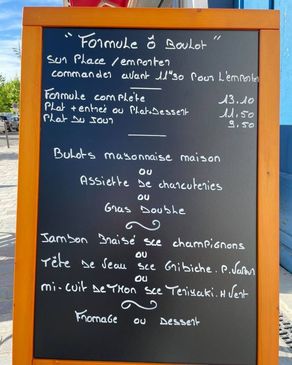 " Formule ô Boulot "
Sur Place / emporter
commander avant 11h30 Pour L'emporter
Formule complète 13.10
Plat + entrée ou Plat + Dessert 11,50
Plat Du Jour 9,50
Bulots masonnaise maison
ou
Assiette De charcuteries
ou
Gras Double
Jambon Braisé sce champignons
ou
Tête De Veau sce Gribiche. P. Vapeur
ou
mi-cuit De Thon sce Teriyaki. H Vert
Fromage ou Dessert